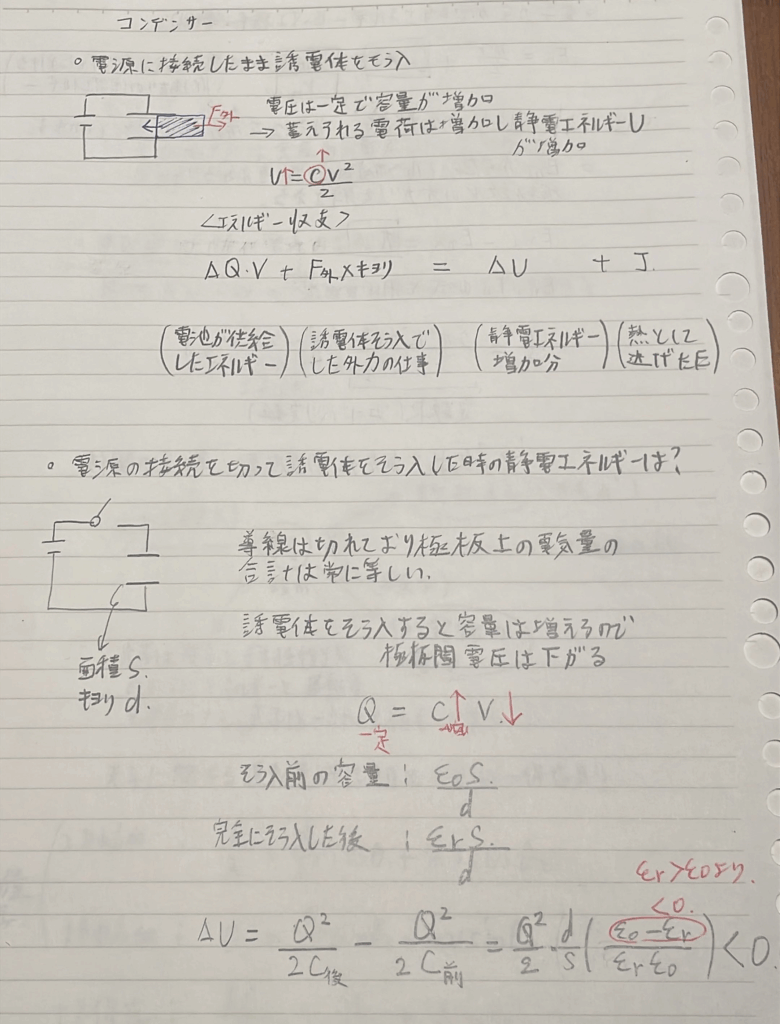 コンデンサー
○ 電源に接続したまま誘電体をそう入
F外
電圧は一定で容量が増加
→ 蓄えられる電荷は増加し静電エネルギーU
が増加
U↑=CV²/2
<エネルギー収支>
ΔQ·V + F外×キョリ = ΔU + J.
(電池が供給したエネルギー) (誘電体そう入でした外力の仕事) (静電エネルギー増加分) (熱として逃げたE)
○ 電源の接続を切って誘電体をそう入した時の静電エネルギーは?
導線は切れており極板上の電気量の
合計は常に等しい.
誘電体をそう入すると容量は増えるので
極板間電圧は下がる
面積 S.
キョリ d.
Q = C↑ V↓
一定
そう入前の容量 : ε0S./d
完全にそう入した後 : εrS./d
εr>ε0より.
<0.
ΔU = Q²/2C後 - Q²/2C前 = Q²/2 · d/S (ε0-εr/εrε0) < 0.